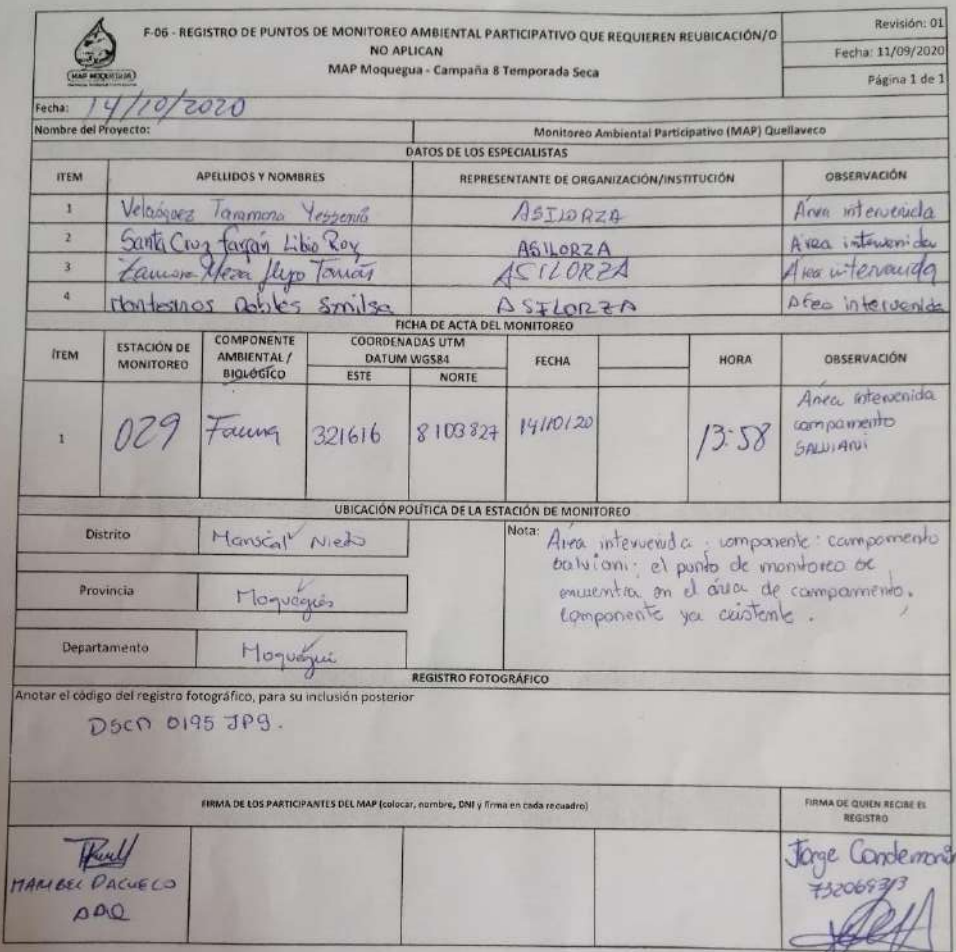 F-06 - REGISTRO DE PUNTOS DE MONITOREO AMBIENTAL PARTICIPATIVO QUE REQUIEREN REUBICACIÓN/O
NO APLICAN
MAP Moquegua - Campaña 8 Temporada Seca
MAP MOQUEGUA
Revisión: 01
Fecha: 11/09/2020
Página 1 de 1
Fecha: 14/10/2020
Nombre del Proyecto: Monitoreo Ambiental Participativo (MAP) Quellaveco
DATOS DE LOS ESPECIALISTAS
ITEM APELLIDOS Y NOMBRES REPRESENTANTE DE ORGANIZACIÓN/INSTITUCIÓN OBSERVACIÓN
1 Velasquez Taramona Yessenia ASILORZA Area intervenida
2 Santa Cruz Farfán Libio Roy ASILORZA Area intervenida
3 Zamora Meza Tomás ASILORZA Area intervenida
4 Montesinos Robles Smilse ASILORZA Area intervenida
FICHA DE ACTA DEL MONITOREO
ÍTEM ESTACIÓN DE MONITOREO COMPONENTE AMBIENTAL / BIOLÓGICO COORDENADAS UTM DATUM WGS84 FECHA HORA OBSERVACIÓN
ESTE NORTE
1 029 Fauna 321616 8103827 14/10/20 13:58 Area intervenida campamento SALVIANI
UBICACIÓN POLÍTICA DE LA ESTACIÓN DE MONITOREO
Distrito Mariscal Nieto
Provincia Moquegua
Departamento Moquegua
Nota: Area intervenida. componente: campamento
salviani; el punto de monitoreo se
encuentra en el área de campamento.
componente ya existente.
REGISTRO FOTOGRÁFICO
Anotar el código del registro fotográfico, para su inclusión posterior
DSCN 0195 JPG.
FIRMA DE LOS PARTICIPANTES DEL MAP (colocar, nombre, DNI y firma en cada recuadro)
FIRMA DE QUIEN RECIBE EL
REGISTRO
MARIBEL PACHECO
AAQ
Jorge Condemon